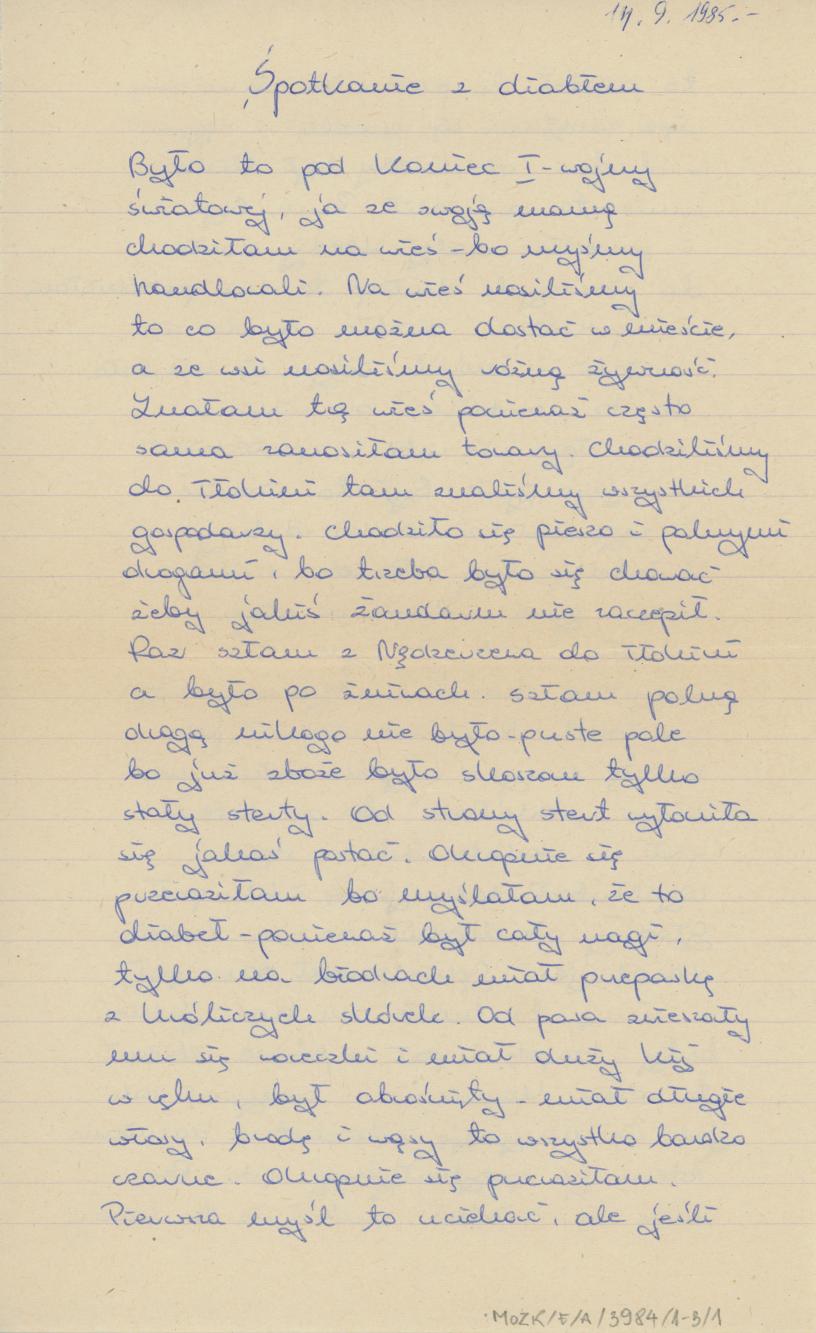 14. 9. 1985.-
Spotkanie z diabłem
Było to pod koniec I-wojny
światowej, ja ze swoją mamą
chodziłam na wieś - bo myśmy
handlowali. Na wieś nosiliśmy
to co było można dostać w mieście,
a ze wsi nosiliśmy różną żywność.
Znałam tą wieś ponieważ często
sama zanosiłam towary. Chodziliśmy
do Tłokini tam znaliśmy wszystkich
gospodarzy. Chodziło się pieszo i polnymi
drogami, bo trzeba było się chować
żeby jakiś żandarm nie zaczepił.
Raz szłam z Nędzerzewa do Tłokini
a było po żniwach. szłam polną
drogą nikogo nie było - puste pole
bo już zboże było skoszon tylko
stały sterty. Od strony stert wyłoniła
się jakaś postać. Okropnie się
przeraziłam bo myślałam, że to
diabeł - ponieważ był cały nagi,
tylko na biodrach miał przepaskę
z króliczych skórek. Od pasa zwieszały
mu się woreczki i miał duży kij
w ręku, był obrośnięty - miał długie
włosy, brodę i wąsy to wszystko bardzo
czarne. Okropnie się przeraziłam.
Pierwsza myśl to uciekać, ale jeśli
MOZK/E/A/3984/1-3/1